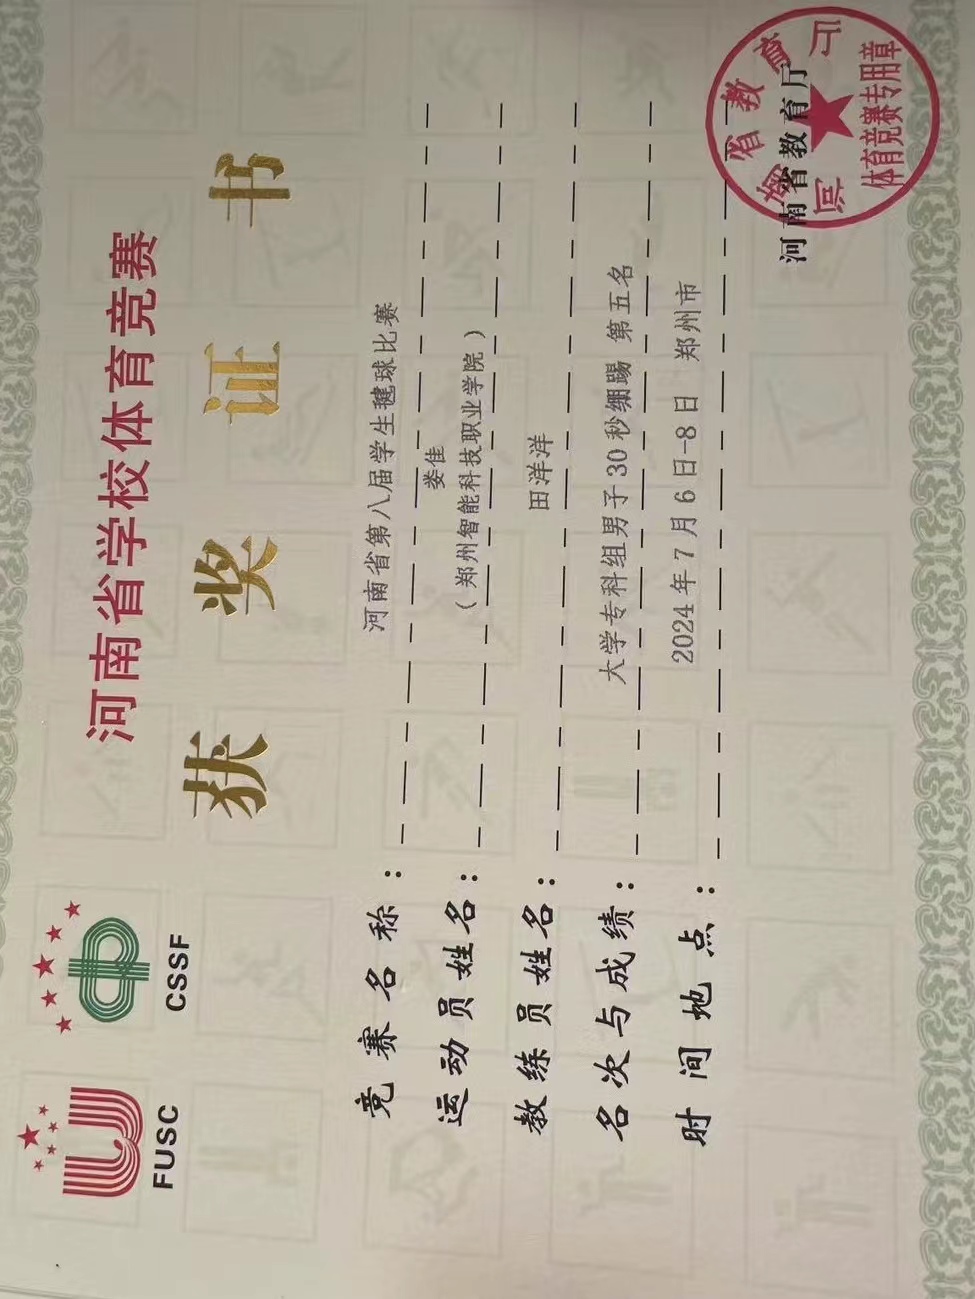 FUSC
CSSF
河南省学校体育竞赛
获奖证书
竞赛名称：河南省第八届学生毽球比赛
运动员姓名：娄佳
（郑州智能科技职业学院）
教练员姓名：田洋洋
名次与成绩：大学专科组男子30秒绷踢 第五名
时间地点：2024年7月6日-8日 郑州市
河南省教育厅
河南省教育厅
体育竞赛专用章